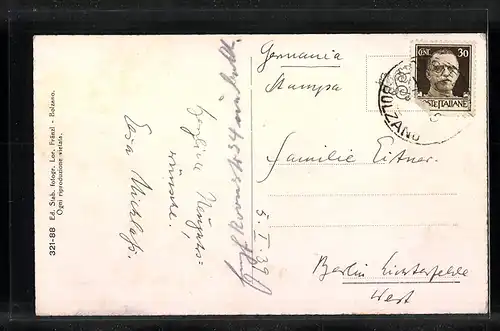 Germania
Stampa
CENT. 30
POSTE ITALIANE
BOLZANO
Familie Eitner.
Berlin Lichterfelde
West
5. I. 39
Herzliche Neujahrs=
wünsche.
321-88 Ed. Stab. fotogr. Lor. Fränzl - Bolzano.
Ogni riproduzione vietata.